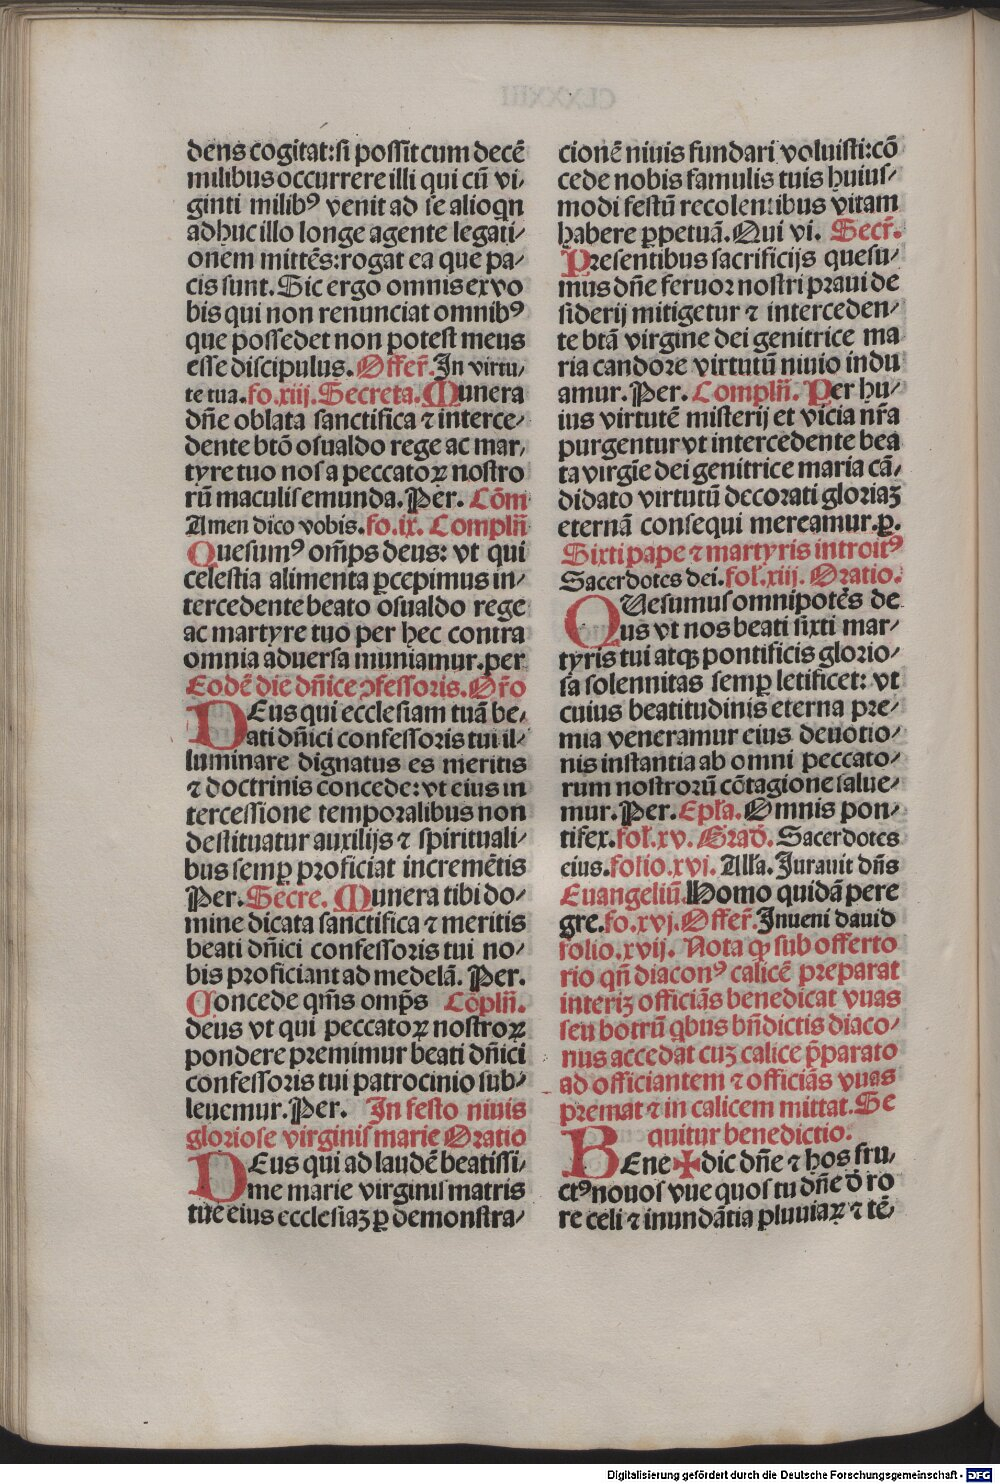 dens cogitat:si possit cum decē
milibus occurrere illi qui cū vi-
ginti milibꝰ venit ad se alioqn
adhuc illo longe agente legati-
onem mittēs:rogat ea que pa-
cis sunt.Sic ergo omnis ex vo
bis qui non renunciat omnibꝰ
que possedet non potest meus
esse discipulus.Offer̄.In virtu-
te tua.fo.xiij.Secreta.Munera
dn̄e oblata sanctifica ⁊ interce-
dente btō osualdo rege ac mar-
tyre tuo nos a peccatoꝝ nostro
rū maculis emunda.Per. Cōm
Amen dico vobis.fo.ix. Compln̄
Quesumꝰ om̄ps deus: vt qui
celestia alimenta ꝑcepimus in-
tercedente beato osualdo rege
ac martyre tuo per hęc contra
omnia aduersa muniamur.per
Eodē die dn̄ice ꝯfessoris.Or̄o
DEus qui ecclesiam tuā be-
ati dn̄ici confessoris tui il-
luminare dignatus es meritis
⁊ doctrinis concede:vt eius in
tercessione temporalibus non
destituatur auxilijs ⁊ spirituali-
bus semꝑ proficiat incremētis
Per.Secre. Munera tibi do-
mine dicata sanctifica ⁊ meritis
beati dn̄ici confessoris tui no-
bis proficiant ad medelā. Per.
Concede qm̄s omp̄s Cōpln̄.
deus vt qui peccatoꝝ nostroꝝ
pondere premimur beati dn̄ici
confessoris tui patrocinio sub-
leuemur.Per. In festo niuis
gloriose virginis marie Oratio
DEus qui ad laudē beatissi-
me marie virginis matris
tue eius ecclesiaꝫ ꝑ demonstra-
cionē niuis fundari voluisti:cō
cede nobis famulis tuis huius-
modi festū recolentibus vitam
habere ꝑpetuā.Qui vi. Secr̄.
Presentibus sacrificijs quesu-
mus dn̄e feruor nostri praui de
siderij mitigetur ⁊ interceden-
te btā virgine dei genitrice ma
ria candore virtutū niuio indu
amur.Per. Compln̄. Per hu-
ius virtutē misterij et vicia nr̄a
purgentur vt intercedente bea
ta virgīe dei genitrice maria cā-
didato virtutū decorati gloriaꝫ
eternā consequi mereamur.ꝑ.
Sixti pape ⁊ martyris introitꝰ
Sacerdotes dei.fol̄.xiij. Oratio.
QUesumus omnipotēs de
us vt nos beati sixti mar-
tyris tui atqꝫ pontificis glorio-
sa solennitas semꝑ letificet: vt
cuius beatitudinis eterna pre-
mia veneramur eius deuotio-
nis instantia ab omni peccato-
rum nostrorū cōtagione salue-
mur.Per. Epl̄a. Omnis pon-
tifex.fol̄.xv. Grad̄. Sacerdotes
eius.folio.xvi. All̄a. Jurauit dn̄s
Euangeliū.Homo quidā pere
gre.fo.xvj.Offer̄.Inueni dauid
folio.xvij. Nota ꝙ sub offerto
rio qn̄ diaconꝰ calicē preparat
interiꝫ officiās benedicat vuas
seu botrū qbus bn̄dictis diaco-
nus accedat cuꝫ calice p̄parato
ad officiantem ⁊ officiās vuas
premat ⁊ in calicem mittat.Se
quitur benedictio.
BEne✠dic dn̄e ⁊ hos fru-
ctꝰ nouos vue quos tu dn̄e d̄ ro
re celi ⁊ inundātia pluuiaꝝ ⁊ tē-
Digitalisierung gefördert durch die Deutsche Forschungsgemeinschaft - DFG